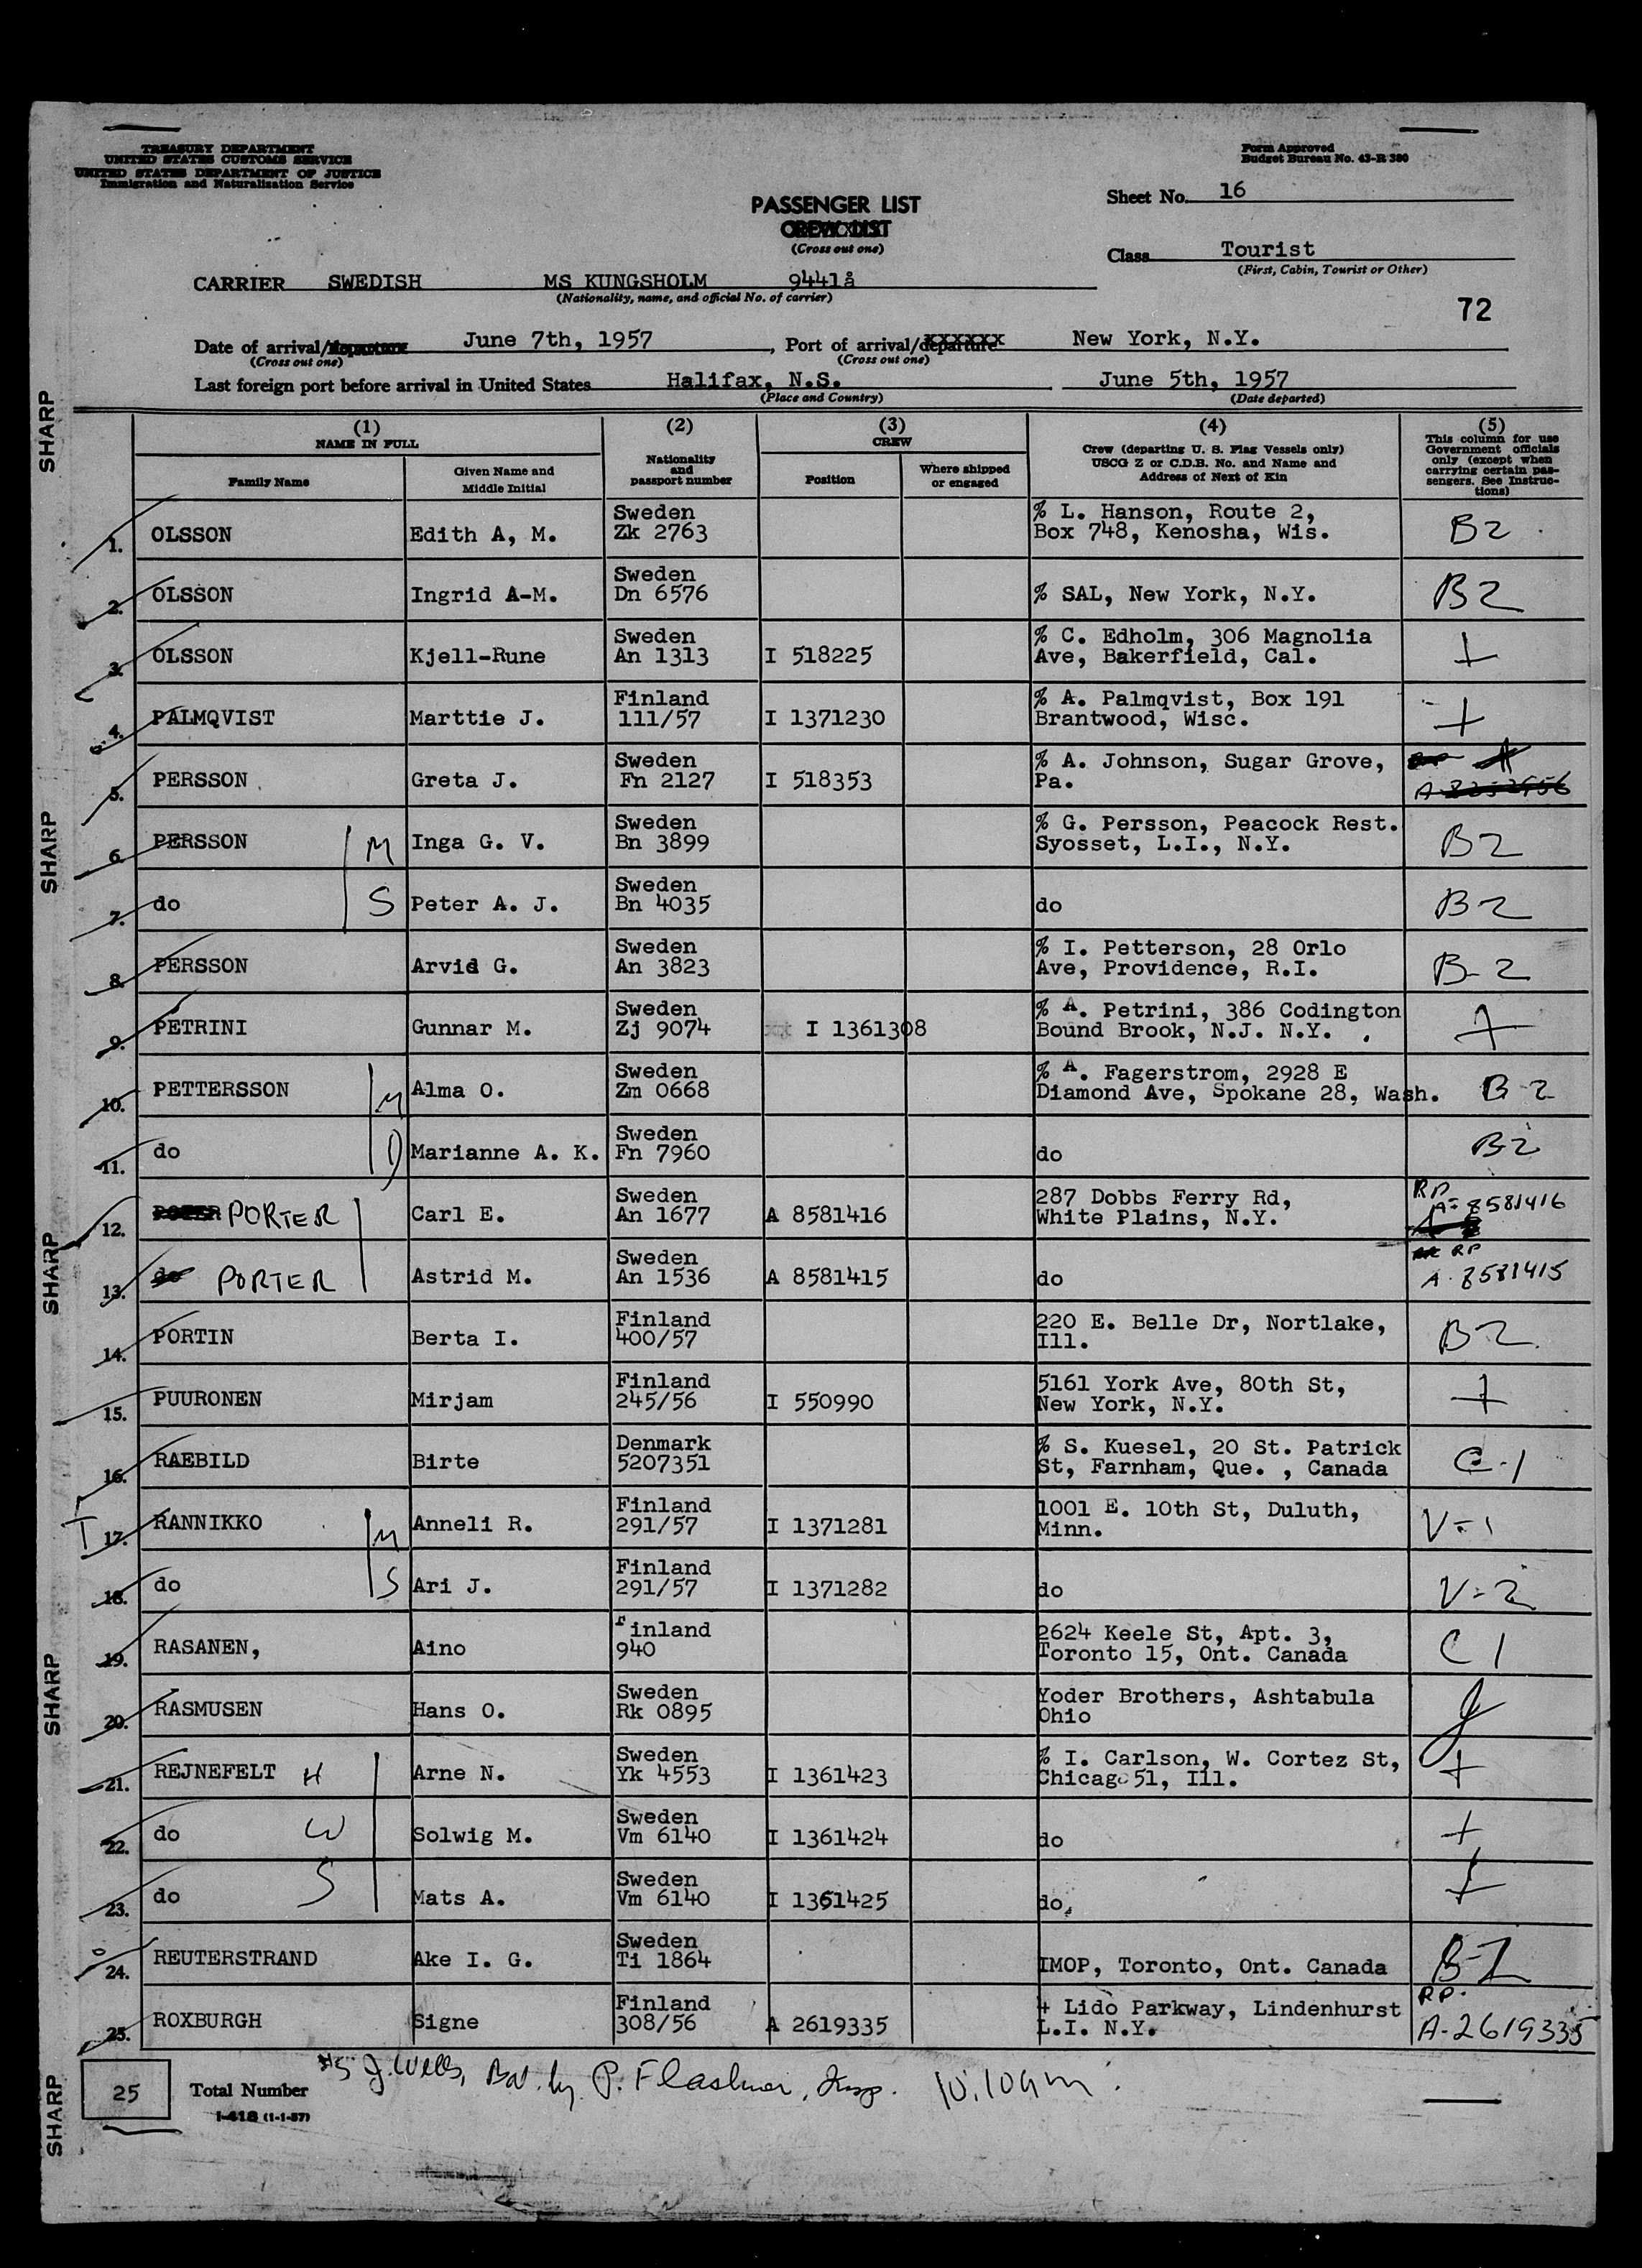 TREASURY DEPARTMENT
UNITED STATES CUSTOMS SERVICE
UNITED STATES DEPARTMENT OF JUSTICE
Immigration and Naturalization Service
Form Approved
Budget Bureau No. 43-R 380
PASSENGER LIST
CREW LIST
(Cross out one)
Sheet No. 16
Class Tourist
(First, Cabin, Tourist or Other)
CARRIER SWEDISH MS KUNGSHOLM 9441å
(Nationality, name, and official No. of carrier)
72
Date of arrival/departure June 7th, 1957, Port of arrival/departure New York, N.Y.
(Cross out one) (Cross out one)
Last foreign port before arrival in United States Halifax, N.S. June 5th, 1957
(Place and Country) (Date departed)
(1) NAME IN FULL
Family Name
Given Name and Middle Initial
(2) Nationality and passport number
(3) CREW
Position
Where shipped or engaged
(4) Crew (departing U. S. Flag Vessels only) USCG Z or C.D.B. No. and Name and Address of Next of Kin
(5) This column for use Government officials only (except when carrying certain passengers. See Instructions)
1. OLSSON Edith A, M. Sweden Zk 2763 % L. Hanson, Route 2, Box 748, Kenosha, Wis. B2
2. OLSSON Ingrid A-M. Sweden Dn 6576 % SAL, New York, N.Y. B2
3. OLSSON Kjell-Rune Sweden An 1313 I 518225 % C. Edholm, 306 Magnolia Ave, Bakerfield, Cal. +
4. PALMQVIST Marttie J. Finland 111/57 I 1371230 % A. Palmqvist, Box 191 Brantwood, Wisc. +
5. PERSSON Greta J. Sweden Fn 2127 I 518353 % A. Johnson, Sugar Grove, Pa.
6. PERSSON M Inga G. V. Sweden Bn 3899 % G. Persson, Peacock Rest. Syosset, L.I., N.Y. B2
7. do S Peter A. J. Sweden Bn 4035 do B-2
8. PERSSON Arvid G. Sweden An 3823 % I. Petterson, 28 Orlo Ave, Providence, R.I. B-2
9. PETRINI Gunnar M. Sweden Zj 9074 I 1361308 % A. Petrini, 386 Codington Bound Brook, N.J. N.Y. +
10. PETTERSSON M Alma O. Sweden Zm 0668 % A. Fagerstrom, 2928 E Diamond Ave, Spokane 28, Wash. B-2
11. do D Marianne A. K. Sweden Fn 7960 do B-2
12. PORTER Carl E. Sweden An 1677 A 8581416 287 Dobbs Ferry Rd, White Plains, N.Y. RP A-8581416
13. do PORTER Astrid M. Sweden An 1536 A 8581415 do RP A-8581415
14. PORTIN Berta I. Finland 400/57 220 E. Belle Dr, Nortlake, Ill. B2
15. PUURONEN Mirjam Finland 245/56 I 550990 5161 York Ave, 80th St, New York, N.Y. +
16. RAEBILD Birte Denmark 5207351 % S. Kuesel, 20 St. Patrick St, Farnham, Que. , Canada C-1
T 17. RANNIKKO M Anneli R. Finland 291/57 I 1371281 1001 E. 10th St, Duluth, Minn. V-1
18. do S Ari J. Finland 291/57 I 1371282 do V-2
19. RASANEN, Aino Finland 940 2624 Keele St, Apt. 3, Toronto 15, Ont. Canada C1
20. RASMUSEN Hans O. Sweden Rk 0895 Yoder Brothers, Ashtabula Ohio
21. REJNEFELT H Arne N. Sweden Yk 4553 I 1361423 % I. Carlson, W. Cortez St, Chicago 51, Ill. +
22. do W Solwig M. Sweden Vm 6140 I 1361424 do +
23. do S Mats A. Sweden Vm 6140 I 1361425 do, +
24. REUTERSTRAND Ake I. G. Sweden Ti 1864 IMOP, Toronto, Ont. Canada
25. ROXBURGH Signe Finland 308/56 A 2619335 4 Lido Parkway, Lindenhurst L.I. N.Y. RP. A-2619335
25 Total Number
I-418 (1-1-57)
#5 J. Wells, by P. Flashner, Insp. 10.10am.
SHARP
SHARP
SHARP
SHARP
SHARP